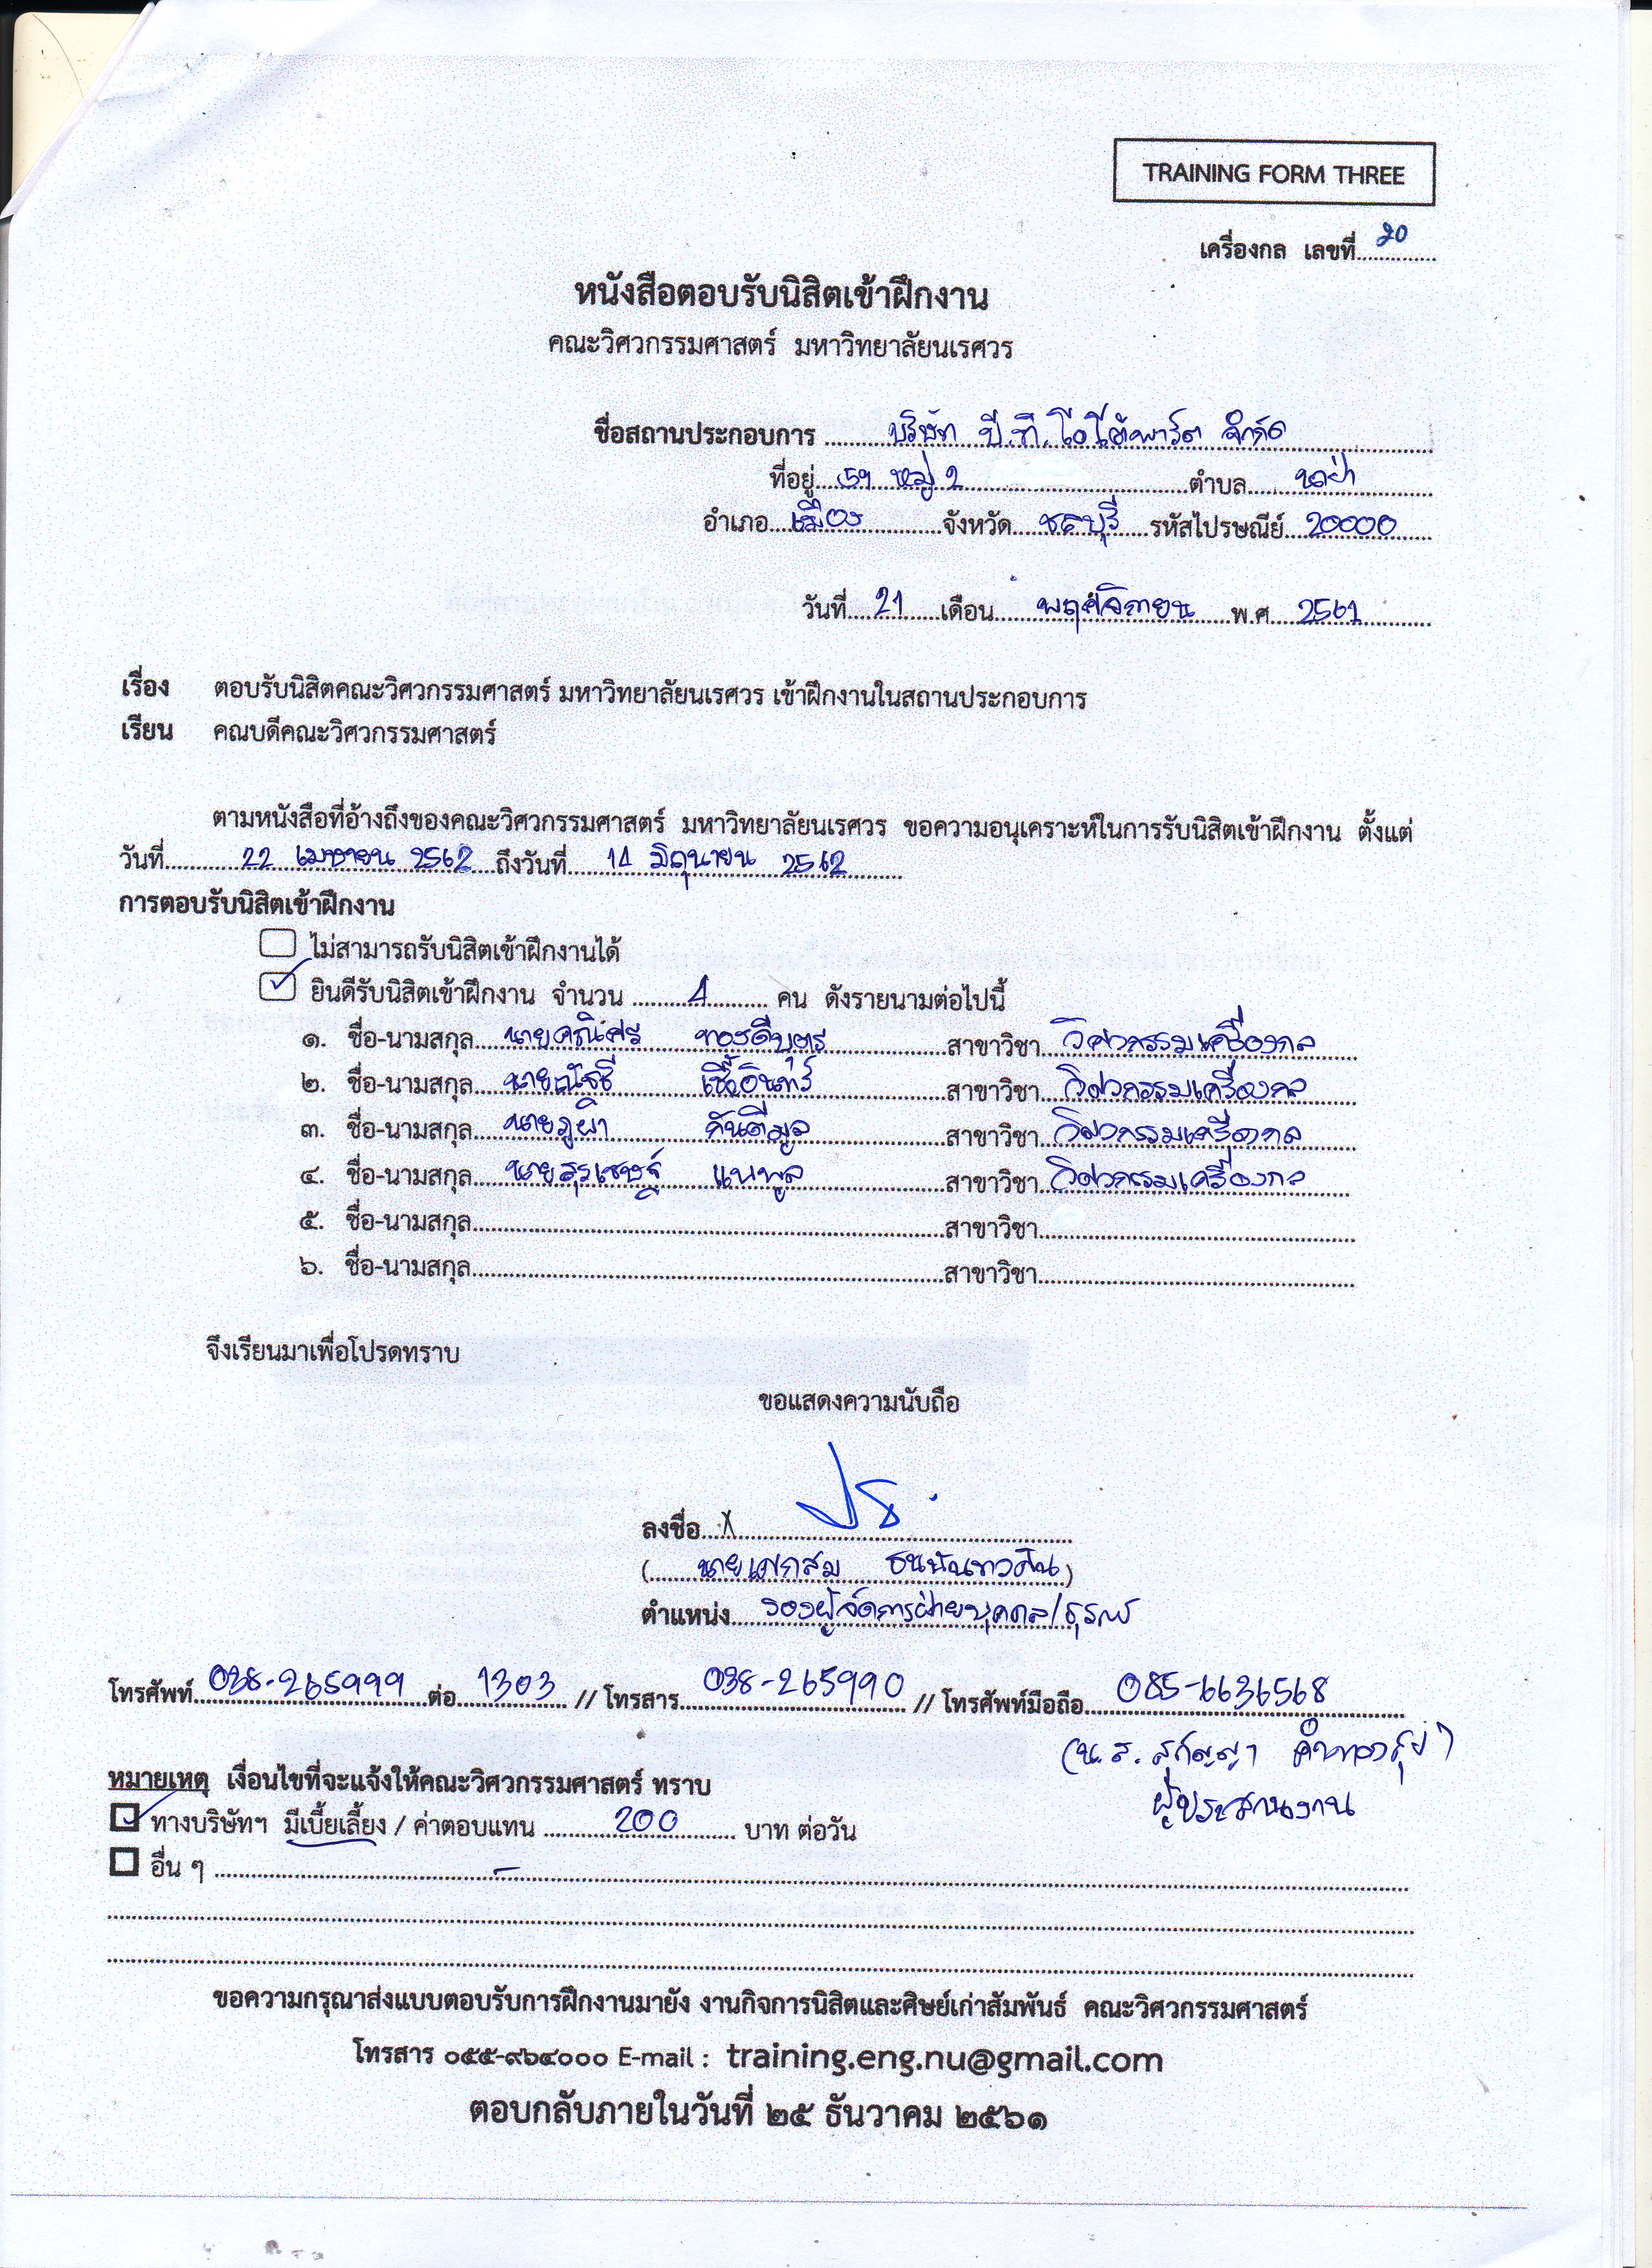 TRAINING FORM THREE
เครื่องกล เลขที่ 20
หนังสือตอบรับนิสิตเข้าฝึกงาน
คณะวิศวกรรมศาสตร์ มหาวิทยาลัยนเรศวร
ชื่อสถานประกอบการ บริษัท บี.ที.ออโตพาร์ต จำกัด
ที่อยู่ 59 หมู่ 2 ตำบล นาป่า
อำเภอ เมือง จังหวัด ชลบุรี รหัสไปรษณีย์ 20000
วันที่ 21 เดือน พฤศจิกายน พ.ศ. 2561
เรื่อง ตอบรับนิสิตคณะวิศวกรรมศาสตร์ มหาวิทยาลัยนเรศวร เข้าฝึกงานในสถานประกอบการ
เรียน คณบดีคณะวิศวกรรมศาสตร์
ตามหนังสือที่อ้างถึงของคณะวิศวกรรมศาสตร์ มหาวิทยาลัยนเรศวร ขอความอนุเคราะห์ในการรับนิสิตเข้าฝึกงาน ตั้งแต่
วันที่ 22 เมษายน 2562 ถึงวันที่ 14 มิถุนายน 2562
การตอบรับนิสิตเข้าฝึกงาน
ไม่สามารถรับนิสิตเข้าฝึกงานได้
ยินดีรับนิสิตเข้าฝึกงาน จำนวน 4 คน ดังรายนามต่อไปนี้
๑. ชื่อ-นามสกุล นายคณิศร ทองดีบุตร สาขาวิชา วิศวกรรมเครื่องกล
๒. ชื่อ-นามสกุล นายณัชธี เชื้ออินทร์ สาขาวิชา วิศวกรรมเครื่องกล
๓. ชื่อ-นามสกุล นายภูผา กันตีมูล สาขาวิชา วิศวกรรมเครื่องกล
๔. ชื่อ-นามสกุล นายสุรเชษฐ์ แนพูล สาขาวิชา วิศวกรรมเครื่องกล
๕. ชื่อ-นามสกุล สาขาวิชา
๖. ชื่อ-นามสกุล สาขาวิชา
จึงเรียนมาเพื่อโปรดทราบ
ขอแสดงความนับถือ
ลงชื่อ X
( นายเศกสม ธนนันทวศิน )
ตำแหน่ง รองผู้จัดการฝ่ายบุคคล/ธุรการ
โทรศัพท์ 038-265999 ต่อ 1303 // โทรสาร 038-265990 // โทรศัพท์มือถือ 085-6636568
(น.ส. สุกัญญา คำทองสุข)
ผู้ประสานงาน
หมายเหตุ เงื่อนไขที่จะแจ้งให้คณะวิศวกรรมศาสตร์ ทราบ
ทางบริษัทฯ มีเบี้ยเลี้ยง / ค่าตอบแทน 200 บาท ต่อวัน
อื่น ๆ -
ขอความกรุณาส่งแบบตอบรับการฝึกงานมายัง งานกิจการนิสิตและศิษย์เก่าสัมพันธ์ คณะวิศวกรรมศาสตร์
โทรสาร ๐๕๕-๙๖๔๐๐๐ E-mail : training.eng.nu@gmail.com
ตอบกลับภายในวันที่ ๒๕ ธันวาคม ๒๕๖๑